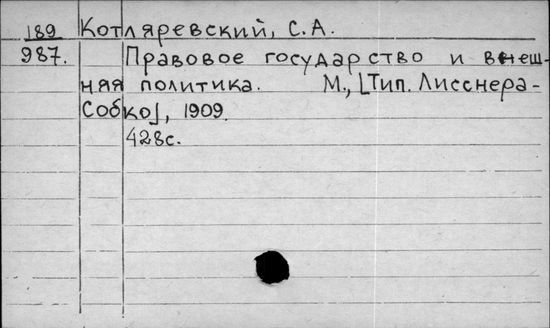 189 Котляревский, С.А.
987. Правовое государство и внеш-
няя политика. М., [Тип. Лисснера-
Собко], 1909.
428с.